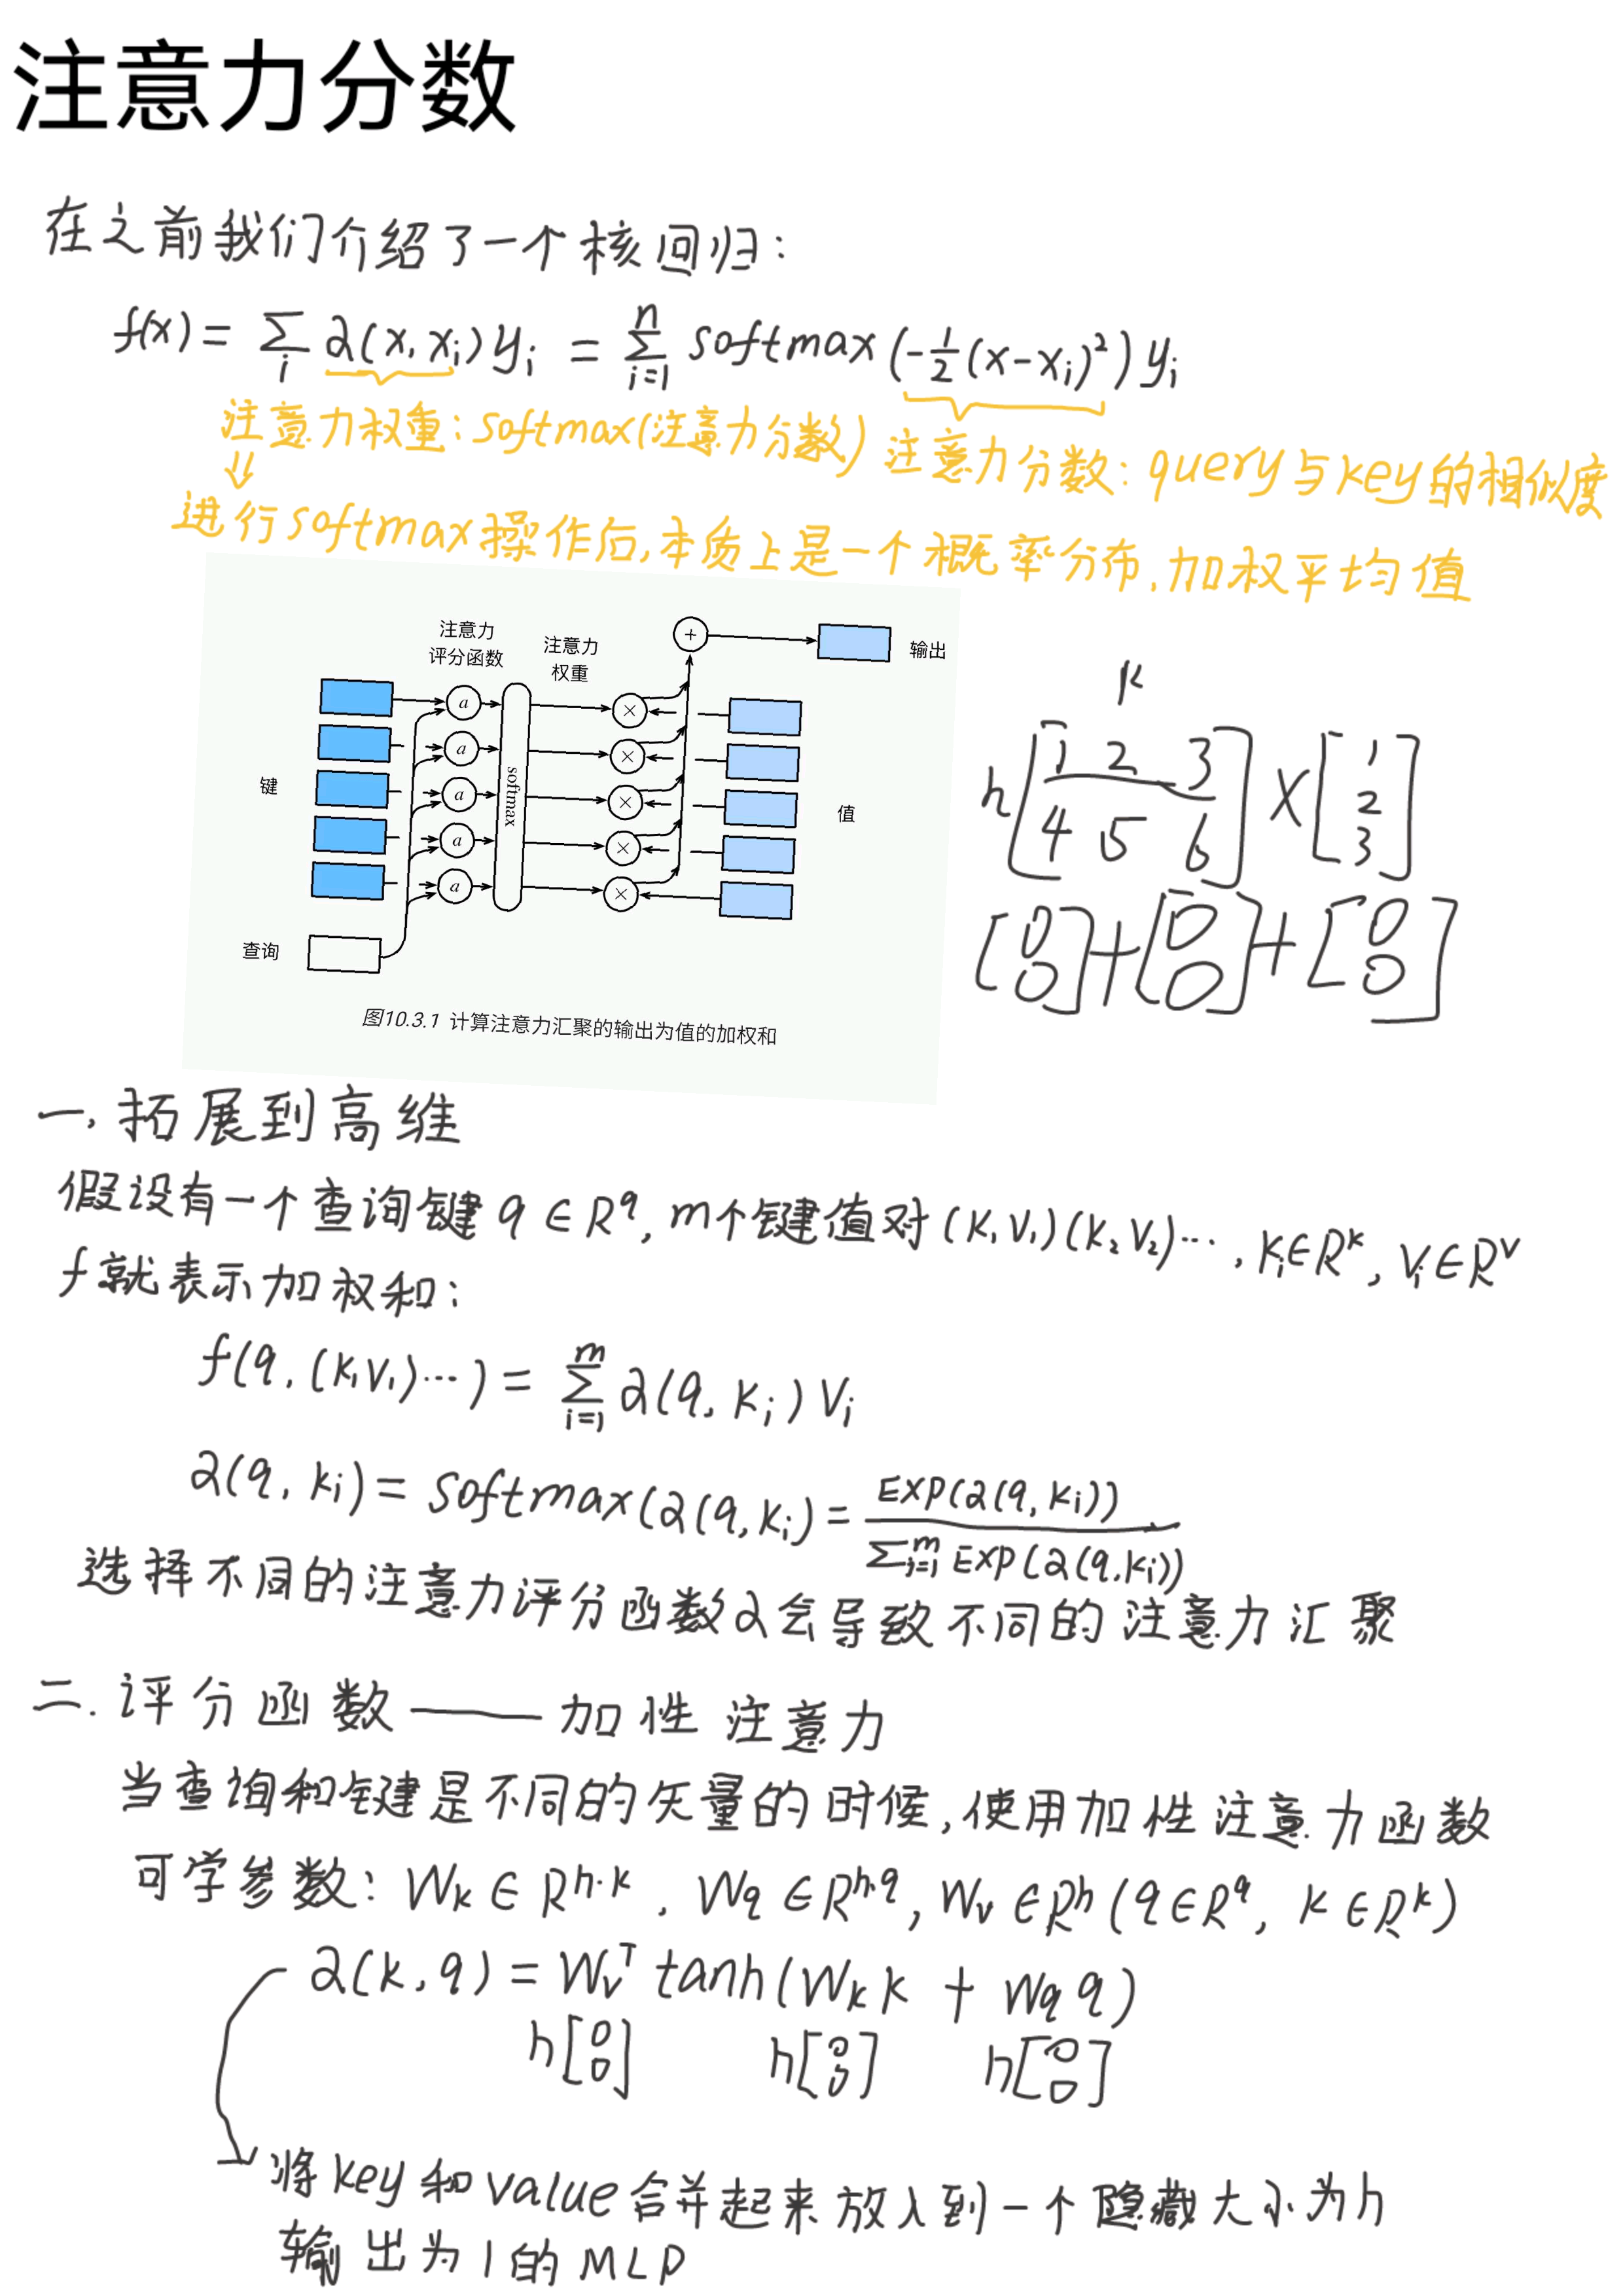 注意力分数
在之前我们介绍了一个核回归：
f(x) = ∑_i α(x, x_i) y_i = ∑_{i=1}^n softmax(-½(x-x_i)²) y_i
注意力权重：softmax(注意力分数) 注意力分数：query与key的相似度
⇓
进行softmax操作后，本质上是一个概率分布，加权平均值
注意力评分函数
注意力权重
+
输出
键
a
a
a
a
a
softmax
×
×
×
×
×
值
查询
图10.3.1 计算注意力汇聚的输出为值的加权和
k
h [1 2 3
4 5 6] × [1
2
3]
[0
0] + [0
0] + [0
0]
一. 拓展到高维
假设有一个查询键 q ∈ R^q, m个键值对 (k₁v₁)(k₂v₂)…, k_i∈R^k, v_i∈R^v
f 就表示加权和：
f(q, (k₁v₁)…) = ∑_{i=1}^m α(q, k_i) v_i
α(q, k_i) = softmax(α(q, k_i) = EXP(α(q, k_i)) / ∑_{i=1}^m EXP(α(q, k_i))
选择不同的注意力评分函数α会导致不同的注意力汇聚
二. 评分函数——加性注意力
当查询和键是不同的矢量的时候，使用加性注意力函数
可学参数：W_k ∈ R^{h·k}, W_q ∈ R^{h·q}, W_v ∈ R^h (q∈R^q, k∈R^k)
α(k, q) = W_v^T tanh(W_k k + W_q q)
h[0
0] h[0
0] h[0
0]
将key和value合并起来放入到一个隐藏大小为h
输出为1的MLP